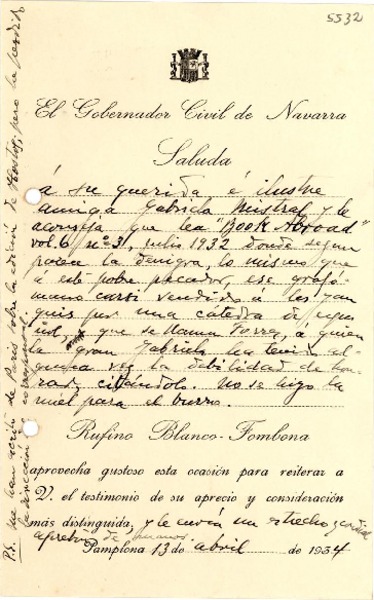 5532
El Gobernador Civil de Navarra
Saluda
á su querida é ilustre
amiga Gabriela Mistral y le
aconseja que lea "Book Abroad"
vol. 6 nº 31, julio 1932 donde según
parece la denigra, lo mismo que
á este pobre pecador, ese grafó-
mano cursi vendido á los yan
quis por una cátedra de espa
ñol, que se llama Torres, á quien
la gran Gabriela ha tenido al-
guna vez la debilidad de hon-
rar, citándolo. No se hizo la
miel para el burro.
Rufino Blanco-Fombona
aprovecha gustoso esta ocasión para reiterar a
V. el testimonio de su aprecio y consideración
más distinguida, y le envía un estrecho y cordial
apretón de manos.
Pamplona 13 de abril de 1934
P.S. Me han escrito de París sobre la edición de pero he perdido
la dirección del corresponsal.